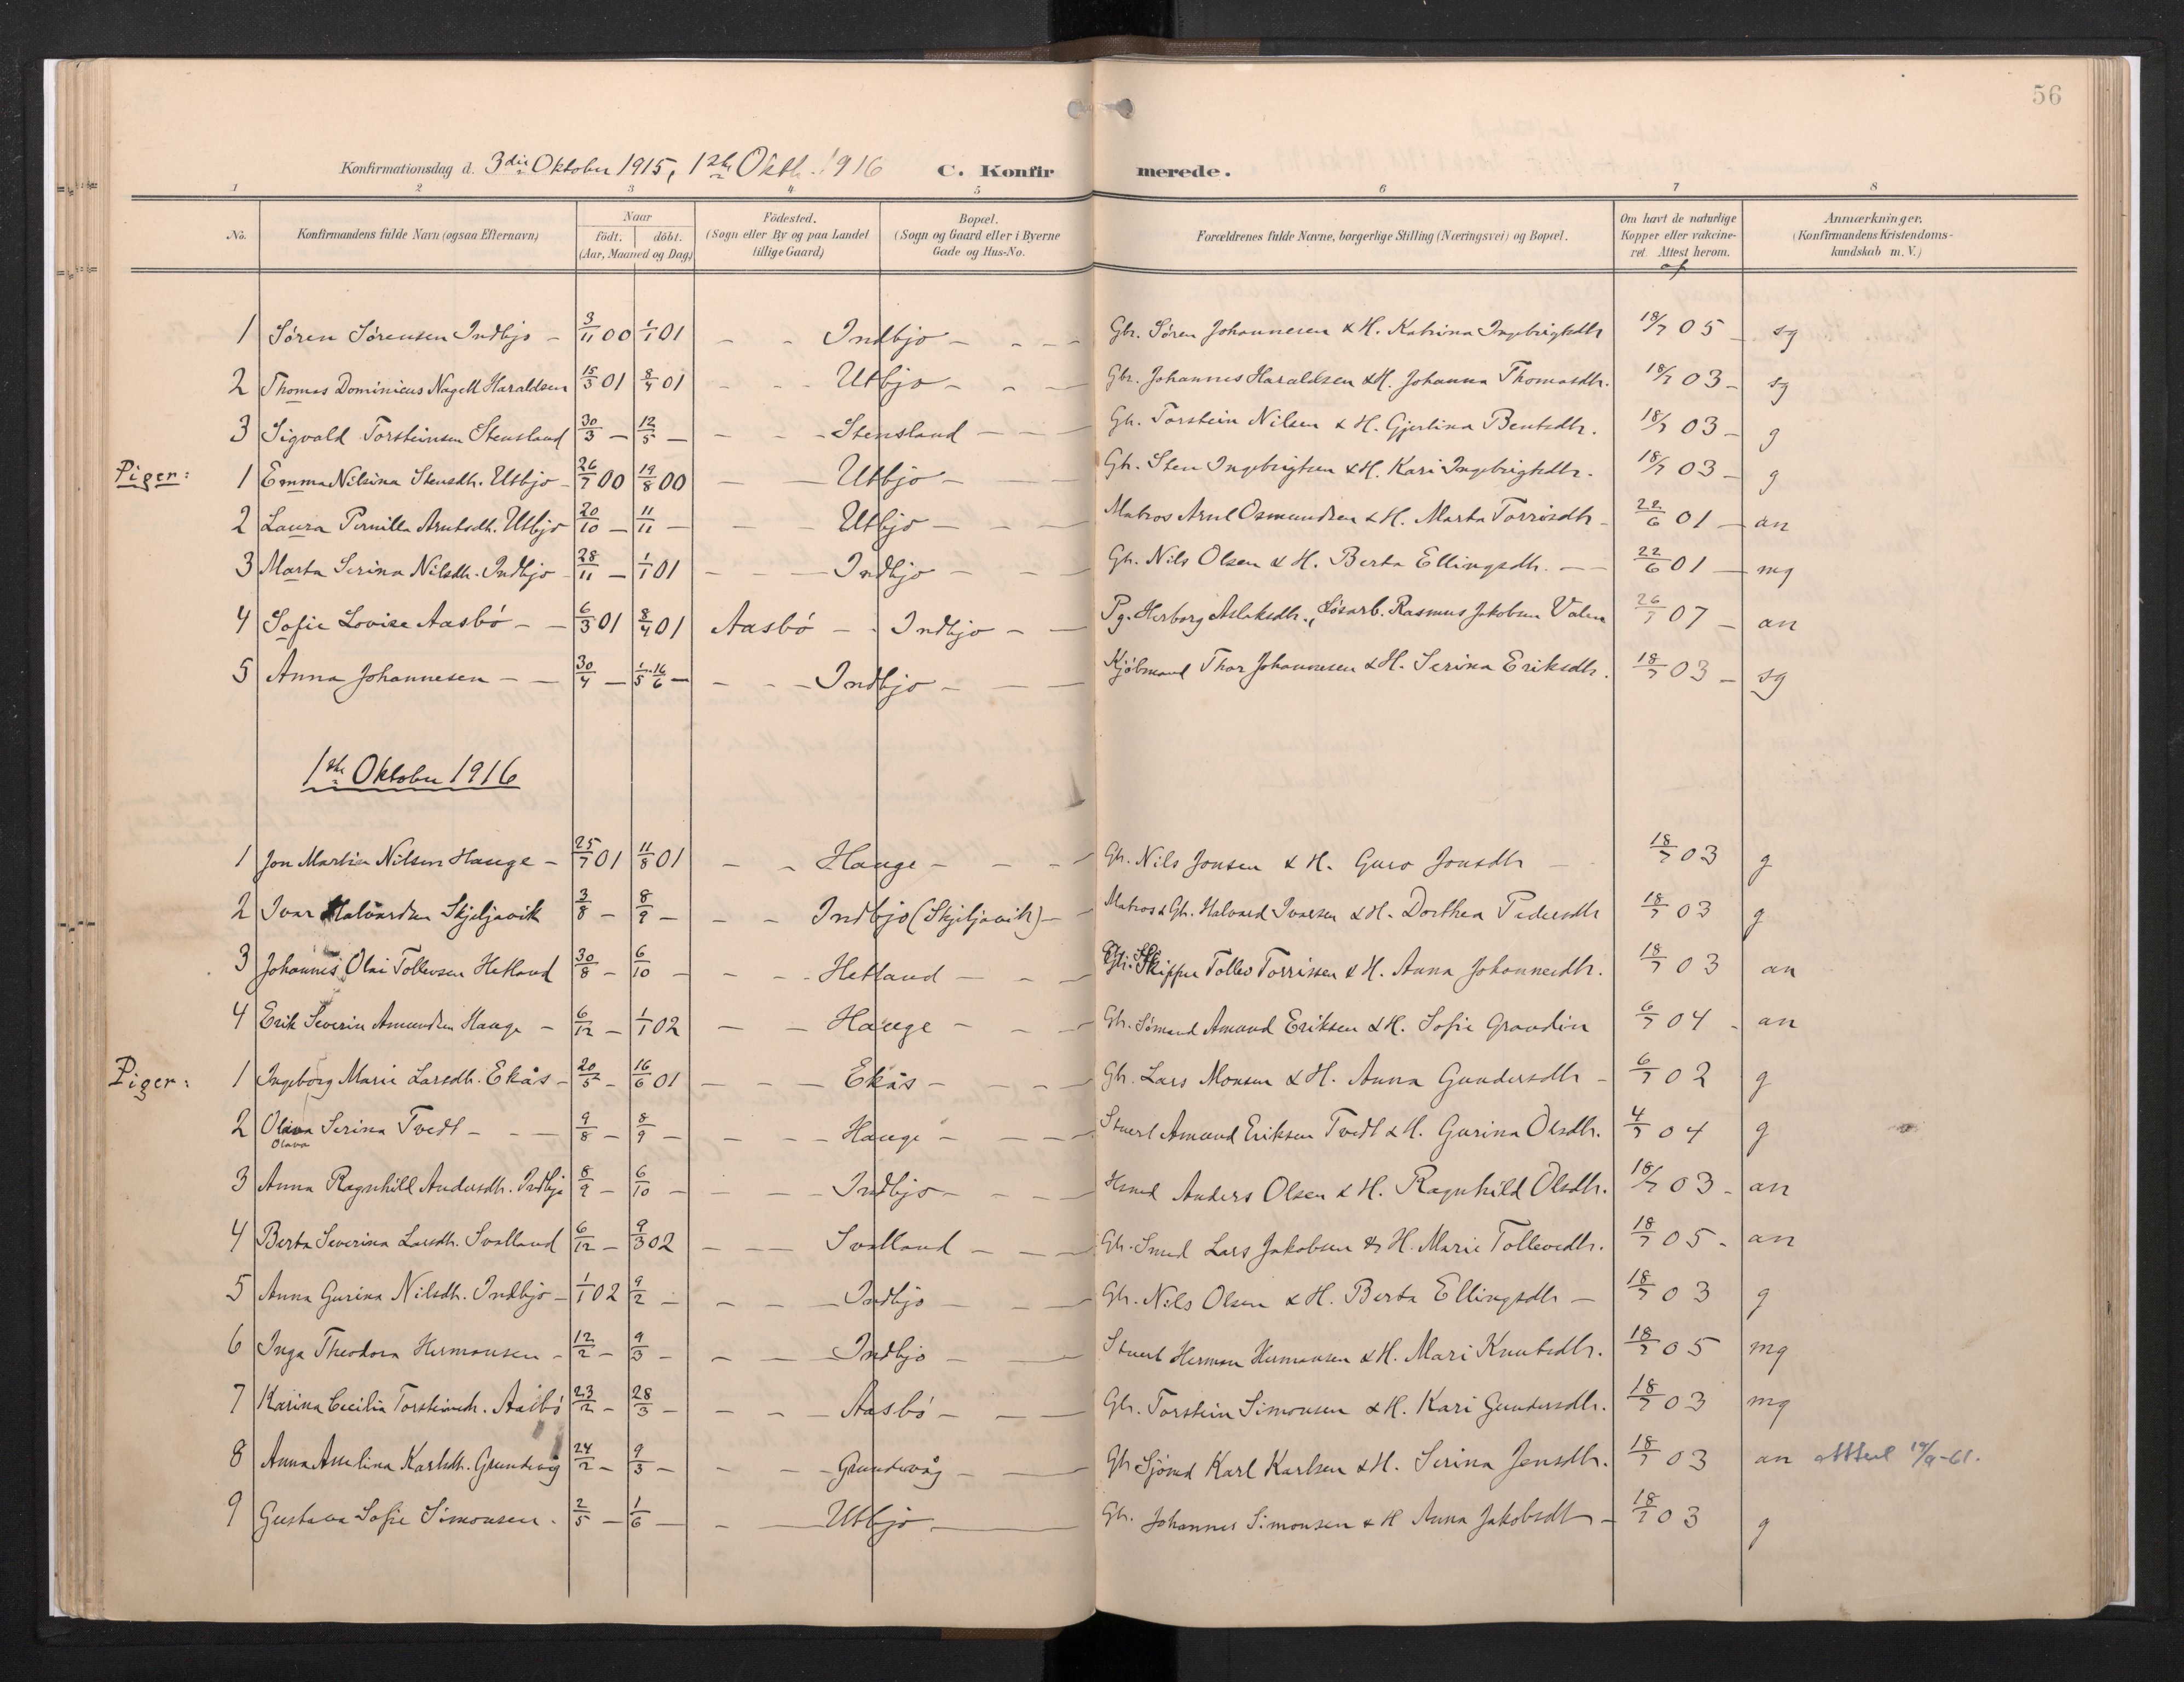 56
Konfirmationsdag d. 3die Oktober 1915, 1ste Oktb. 1916 C. Konfirmerede.
1 2 3 4 5 6 7 8
No. Konfirmandens fulde Navn (ogsaa Efternavn) Naar födt. döbt. (Aar, Maaned og Dag) Födested. (Sogn eller By og paa Landet tillige Gaard) Bopæl. (Sogn og Gaard eller i Byerne Gade og Hus-No. Forældrenes fulde Navne, borgerlige Stilling (Næringsvei) og Bopæl. Om havt de naturlige Kopper eller vakcineret. Attest herom. af Anmærkninger. (Konfirmandens Kristendomskundskab m. V.)
1 Søren Sørensen Indbjo - 3/11 00 1/1 01 - - Indbjo - - - Gbr. Søren Johannesen & H. Katrina Ingebrigtsdtr 18/7 05 - sg
2 Thomas Dominicus Nagell Haraldsen 15/3 01 8/4 01 - - - Utbjo - - - Gbr. Johannes Haraldsen & H. Johanna Thomasdtr. 18/7 03 - sg
3 Sigvald Torsteinsen Stensland 30/3 - 12/5 - - - - Stensland - - - Gbr. Torstein Nilsen & H. Gjertina Bentsdtr. 18/7 03 - g
Piger: 1 Emma Nilsina Stensdtr. Utbjo - 26/7 00 19/8 00 - - Utbjo - - - Gbr. Sten Ingebrigtsen & H. Kari Ingebrigtsdtr. 18/7 03 - g
2 Laura Pernille Arntsdtr. Utbjo 20/10 - 11/11 - - - Utbjo - - - Matros Arnt Osmundsen & H. Marta Torrisdtr - 22/6 01 - an
3 Marta Serina Nilsdtr. Indbjo - 28/11 - 1/1 01 - - - Indbjo - - - Gbr. Nils Olsen & H. Berta Ellingsdtr. - - 22/6 01 - mg
4 Sofie Lovise Aasbó - - 6/3 01 8/4 01 Aasbó - - Indbjo - - Pg. Herborg Aslaksdtr., Løsarb. Rasmus Jakobsen Valen 26/7 07 - an
5 Anna Johannesen - - 30/4 - 1/5 16/6 - - - - Indbjo - - - Kjöbmand Thor Johannesen & H. Serina Eriksdtr. 18/7 03 - sg
1ste Oktober 1916
1 Jon Martin Nilsen Hauge - 25/7 01 11/8 01 - - Hauge - - - Gbr. Nils Jonsen & H. Guro Jonsdtr - 18/7 03 g
2 Ivar Halvardsen Skjeljavik 3/8 - 8/9 - - - Indbjo (Skjeljavik) - Matros & Gbr. Halvard Ivarsen & H. Dorthea Pedersdtr 18/7 03 g
3 Johannes Olai Tollevsen Hetland 30/8 - 6/10 - - - - Hetland - - - Skipper Tollev Torrissen & H. Anna Johannesdtr. 18/7 03 an
4 Erik Severin Amundsen Hauge - 6/12 - 1/1 02 - - Hauge - - - Gbr. Sömand Amund Eriksen & H. Sofie Grondin 6/7 04 - an
Piger: 1 Ingeborg Marie Larsdtr. Ekås - 20/5 - 16/6 01 - - - Ekås - - - Gbr. Lars Monsen & H. Anna Gundersdtr - 6/7 02 g
2 Olava Serina Tvedt - - - 9/8 - 8/9 - - - - Hauge - - - Stuert Amund Eriksen Tvedt & H. Gurina Olsdtr. 4/7 04 g
Olava
3 Anna Ragnhild Andersdtr. Indbjo 8/9 - 6/10 - - - - Indbjo - - - Hsmd Anders Olsen & H. Ragnhild Olsdtr. 18/7 03 - an
4 Berta Severina Larsdtr. Svolland 6/12 - 9/3 02 - - - Svolland - - - Gbr. Smed Lars Jakobsen & H. Marie Tollevsdtr. 18/7 05 - an
5 Anna Gurina Nilsdtr. Indbjo - 1/1 02 9/2 - - - - Indbjo - - - Gbr. Nils Olsen & H. Berta Ellingsdtr - 18/7 03 g
6 Inga Theodora Hermansen - 12/2 - 9/3 - - - - Indbjo - - Stuert Herman Hermansen & H. Mari Knutsdtr. 18/7 05 mg
7 Karina Cecilia Torsteinsdtr. Aasbó 23/2 - 28/3 - - - - Aasbó - - - Gbr. Torstein Simonsen & H. Kari Gundersdtr. 18/7 03 mg
8 Anna Amelina Karlsdtr. Grundevåg 24/2 - 9/3 - - - - Grundevåg - - - Gbr Sjömd Karl Karlsen & H. Serina Jensdtr. 18/7 03 an Attest 19/9-61.
9 Gustava Sofie Simonsen. 2/5 - 1/6 - - - Utbjo - Gbr. Johannes Simonsen & H Anna Jakobsdtr - 18/7 03 g